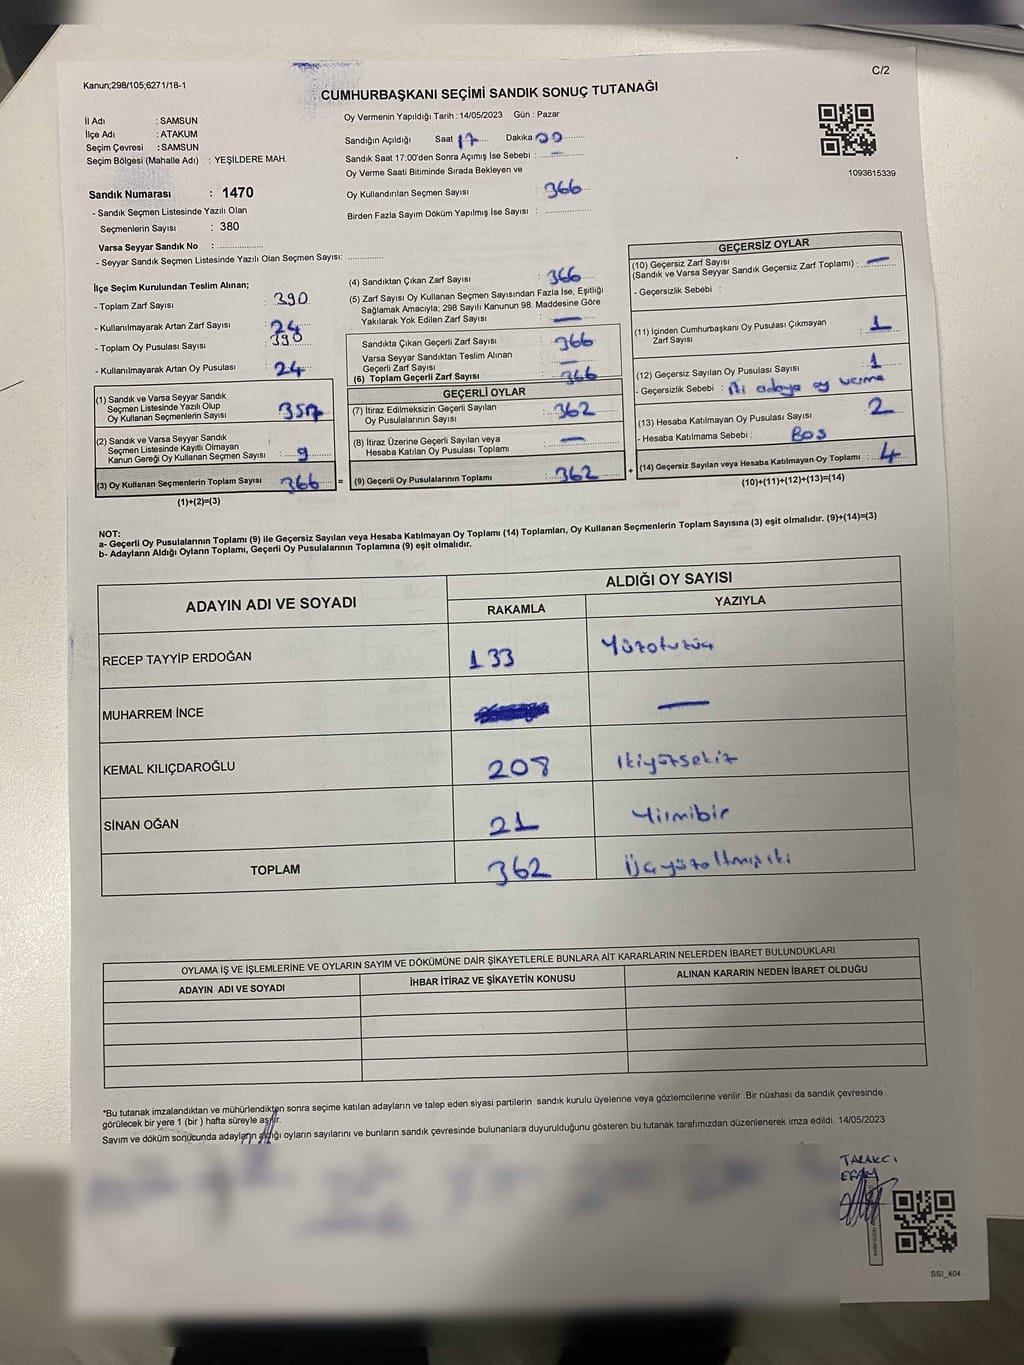 Kanun;298/105;6271/18-1
C/2
CUMHURBAŞKANI SEÇİMİ SANDIK SONUÇ TUTANAĞI
İl Adı : SAMSUN
İlçe Adı : ATAKUM
Seçim Çevresi : SAMSUN
Seçim Bölgesi (Mahalle Adı) : YEŞİLDERE MAH.
Sandık Numarası : 1470
- Sandık Seçmen Listesinde Yazılı Olan
Seçmenlerin Sayısı : 380
Varsa Seyyar Sandık No : ..................
- Seyyar Sandık Seçmen Listesinde Yazılı Olan Seçmen Sayısı: ..............
Oy Vermenin Yapıldığı Tarih : 14/05/2023 Gün : Pazar
Sandığın Açıldığı Saat 17 Dakika 00
Sandık Saat 17:00'den Sonra Açımış İse Sebebi : —
Oy Verme Saati Bitiminde Sırada Bekleyen ve
Oy Kullandırılan Seçmen Sayısı : 366
Birden Fazla Sayım Döküm Yapılmış İse Sayısı : ..................
1093615339
İlçe Seçim Kurulundan Teslim Alınan;
- Toplam Zarf Sayısı : 390
- Kullanılmayarak Artan Zarf Sayısı : 24
- Toplam Oy Pusulası Sayısı : 390
- Kullanılmayarak Artan Oy Pusulası : 24
(1) Sandık ve Varsa Seyyar Sandık
Seçmen Listesinde Yazılı Olup
Oy Kullanan Seçmenlerin Sayısı : 357
(2) Sandık ve Varsa Seyyar Sandık
Seçmen Listesinde Kayıtlı Olmayan
Kanun Gereği Oy Kullanan Seçmen Sayısı : 9
(3) Oy Kullanan Seçmenlerin Toplam Sayısı : 366 =
(1)+(2)=(3)
(4) Sandıktan Çıkan Zarf Sayısı : 366
(5) Zarf Sayısı Oy Kullanan Seçmen Sayısından Fazla İse, Eşitliği
Sağlamak Amacıyla; 298 Sayılı Kanunun 98. Maddesine Göre
Yakılarak Yok Edilen Zarf Sayısı : —
Sandıkta Çıkan Geçerli Zarf Sayısı : 366
Varsa Seyyar Sandıktan Teslim Alınan
Geçerli Zarf Sayısı : —
(6) Toplam Geçerli Zarf Sayısı : 366
GEÇERLİ OYLAR
(7) İtiraz Edilmeksizin Geçerli Sayılan
Oy Pusulasının Sayısı : 362
(8) İtiraz Üzerine Geçerli Sayılan veya
Hesaba Katılan Oy Pusulası Toplamı : —
(9) Geçerli Oy Pusulalarının Toplamı : 362 +
GEÇERSİZ OYLAR
(10) Geçersiz Zarf Sayısı
(Sandık ve Varsa Seyyar Sandık Geçersiz Zarf Toplamı) : —
- Geçersizlik Sebebi :
(11) İçinden Cumhurbaşkanı Oy Pusulası Çıkmayan
Zarf Sayısı : 1
(12) Geçersiz Sayılan Oy Pusulası Sayısı : 1
- Geçersizlik Sebebi : İki adaya oy verme
(13) Hesaba Katılmayan Oy Pusulası Sayısı : 2
- Hesaba Katılmama Sebebi : Boş
(14) Geçersiz Sayılan veya Hesaba Katılmayan Oy Toplamı : 4
(10)+(11)+(12)+(13)=(14)
NOT:
a- Geçerli Oy Pusulalarının Toplamı (9) ile Geçersiz Sayılan veya Hesaba Katılmayan Oy Toplamı (14) Toplamları, Oy Kullanan Seçmenlerin Toplam Sayısına (3) eşit olmalıdır. (9)+(14)=(3)
b- Adayların Aldığı Oyların Toplamı, Geçerli Oy Pusulalarının Toplamına (9) eşit olmalıdır.
ADAYIN ADI VE SOYADI
ALDIĞI OY SAYISI
RAKAMLA YAZIYLA
RECEP TAYYİP ERDOĞAN 133 Yüzotuzüç
MUHARREM İNCE —
KEMAL KILIÇDAROĞLU 208 İkiyüzsekiz
SİNAN OĞAN 21 Yirmibir
TOPLAM 362 Üçyüzaltmışiki
OYLAMA İŞ VE İŞLEMLERİNE VE OYLARIN SAYIM VE DÖKÜMÜNE DAİR ŞİKAYETLERLE BUNLARA AİT KARARLARIN NELERDEN İBARET BULUNDUKLARI
ADAYIN ADI VE SOYADI İHBAR İTİRAZ VE ŞİKAYETİN KONUSU ALINAN KARARIN NEDEN İBARET OLDUĞU
*Bu tutanak imzalandıktan ve mühürlendikten sonra seçime katılan adayların ve talep eden siyasi partilerin sandık kurulu üyelerine veya gözlemcilerine verilir .Bir nüshası da sandık çevresinde
görülecek bir yere 1 (bir ) hafta süreyle asılır.
Sayım ve döküm sonucunda adayların aldığı oyların sayılarını ve bunların sandık çevresinde bulunanlara duyurulduğunu gösteren bu tutanak tarafımızdan düzenlenerek imza edildi. 14/05/2023
SSI_404